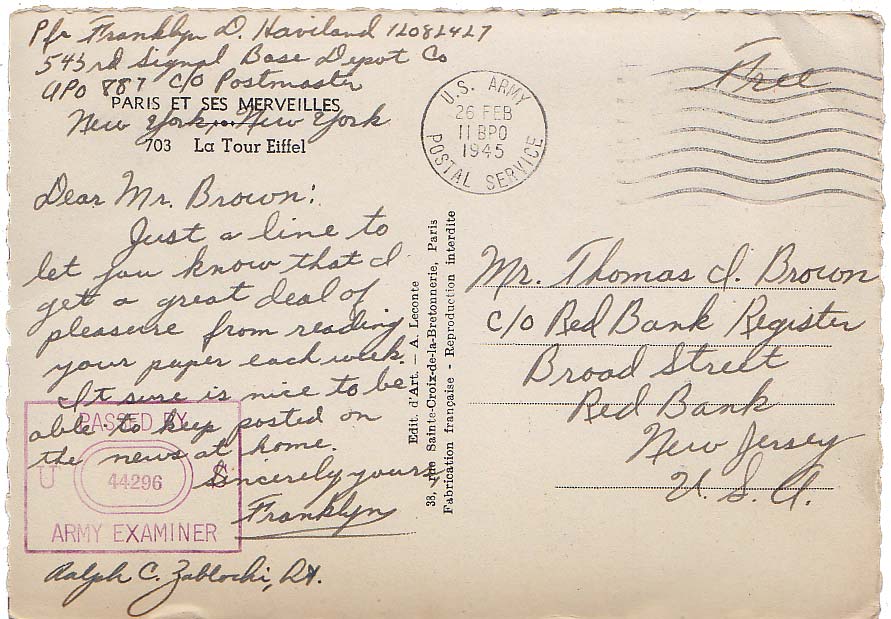 Pfc Franklyn D. Haviland 12082427
543rd Signal Base Depot Co
APO 887 c/o Postmaster
PARIS ET SES MERVEILLES
New York, New York
703 La Tour Eiffel
Dear Mr. Brown:
Just a line to
let you know that I
get a great deal of
pleasure from reading
your paper each week.
It sure is nice to be
able to keep posted on
the news at home.
Sincerely yours
Franklyn
PASSED BY
U S
44296
ARMY EXAMINER
Ralph C. Zablocki, Lt.
Edit. d'Art. — A. Leconte
38, rue Sainte-Croix-de-la-Bretonnerie, Paris
Fabrication française - Reproduction interdite
U.S. ARMY
26 FEB
11 BPO
1945
POSTAL SERVICE
Free
Mr. Thomas I. Brown
c/o Red Bank Register
Broad Street
Red Bank
New Jersey
U. S. A.